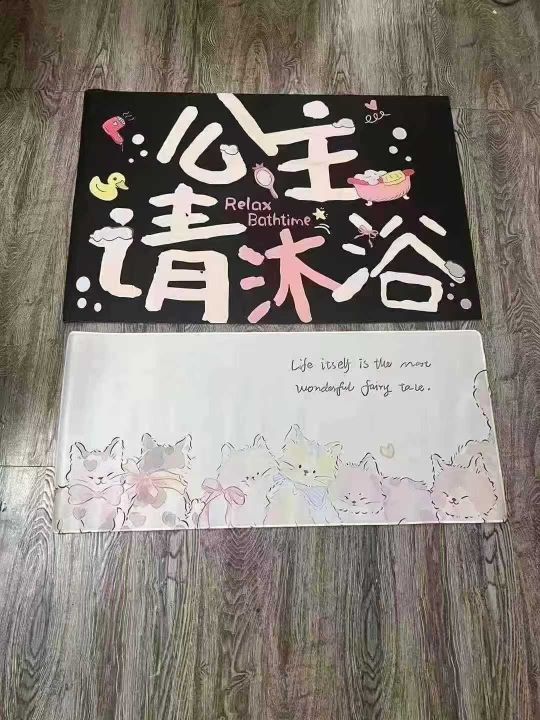 公主
Relax
Bathtime
请沐浴
Life itself is the most
wonderful fairy tale.